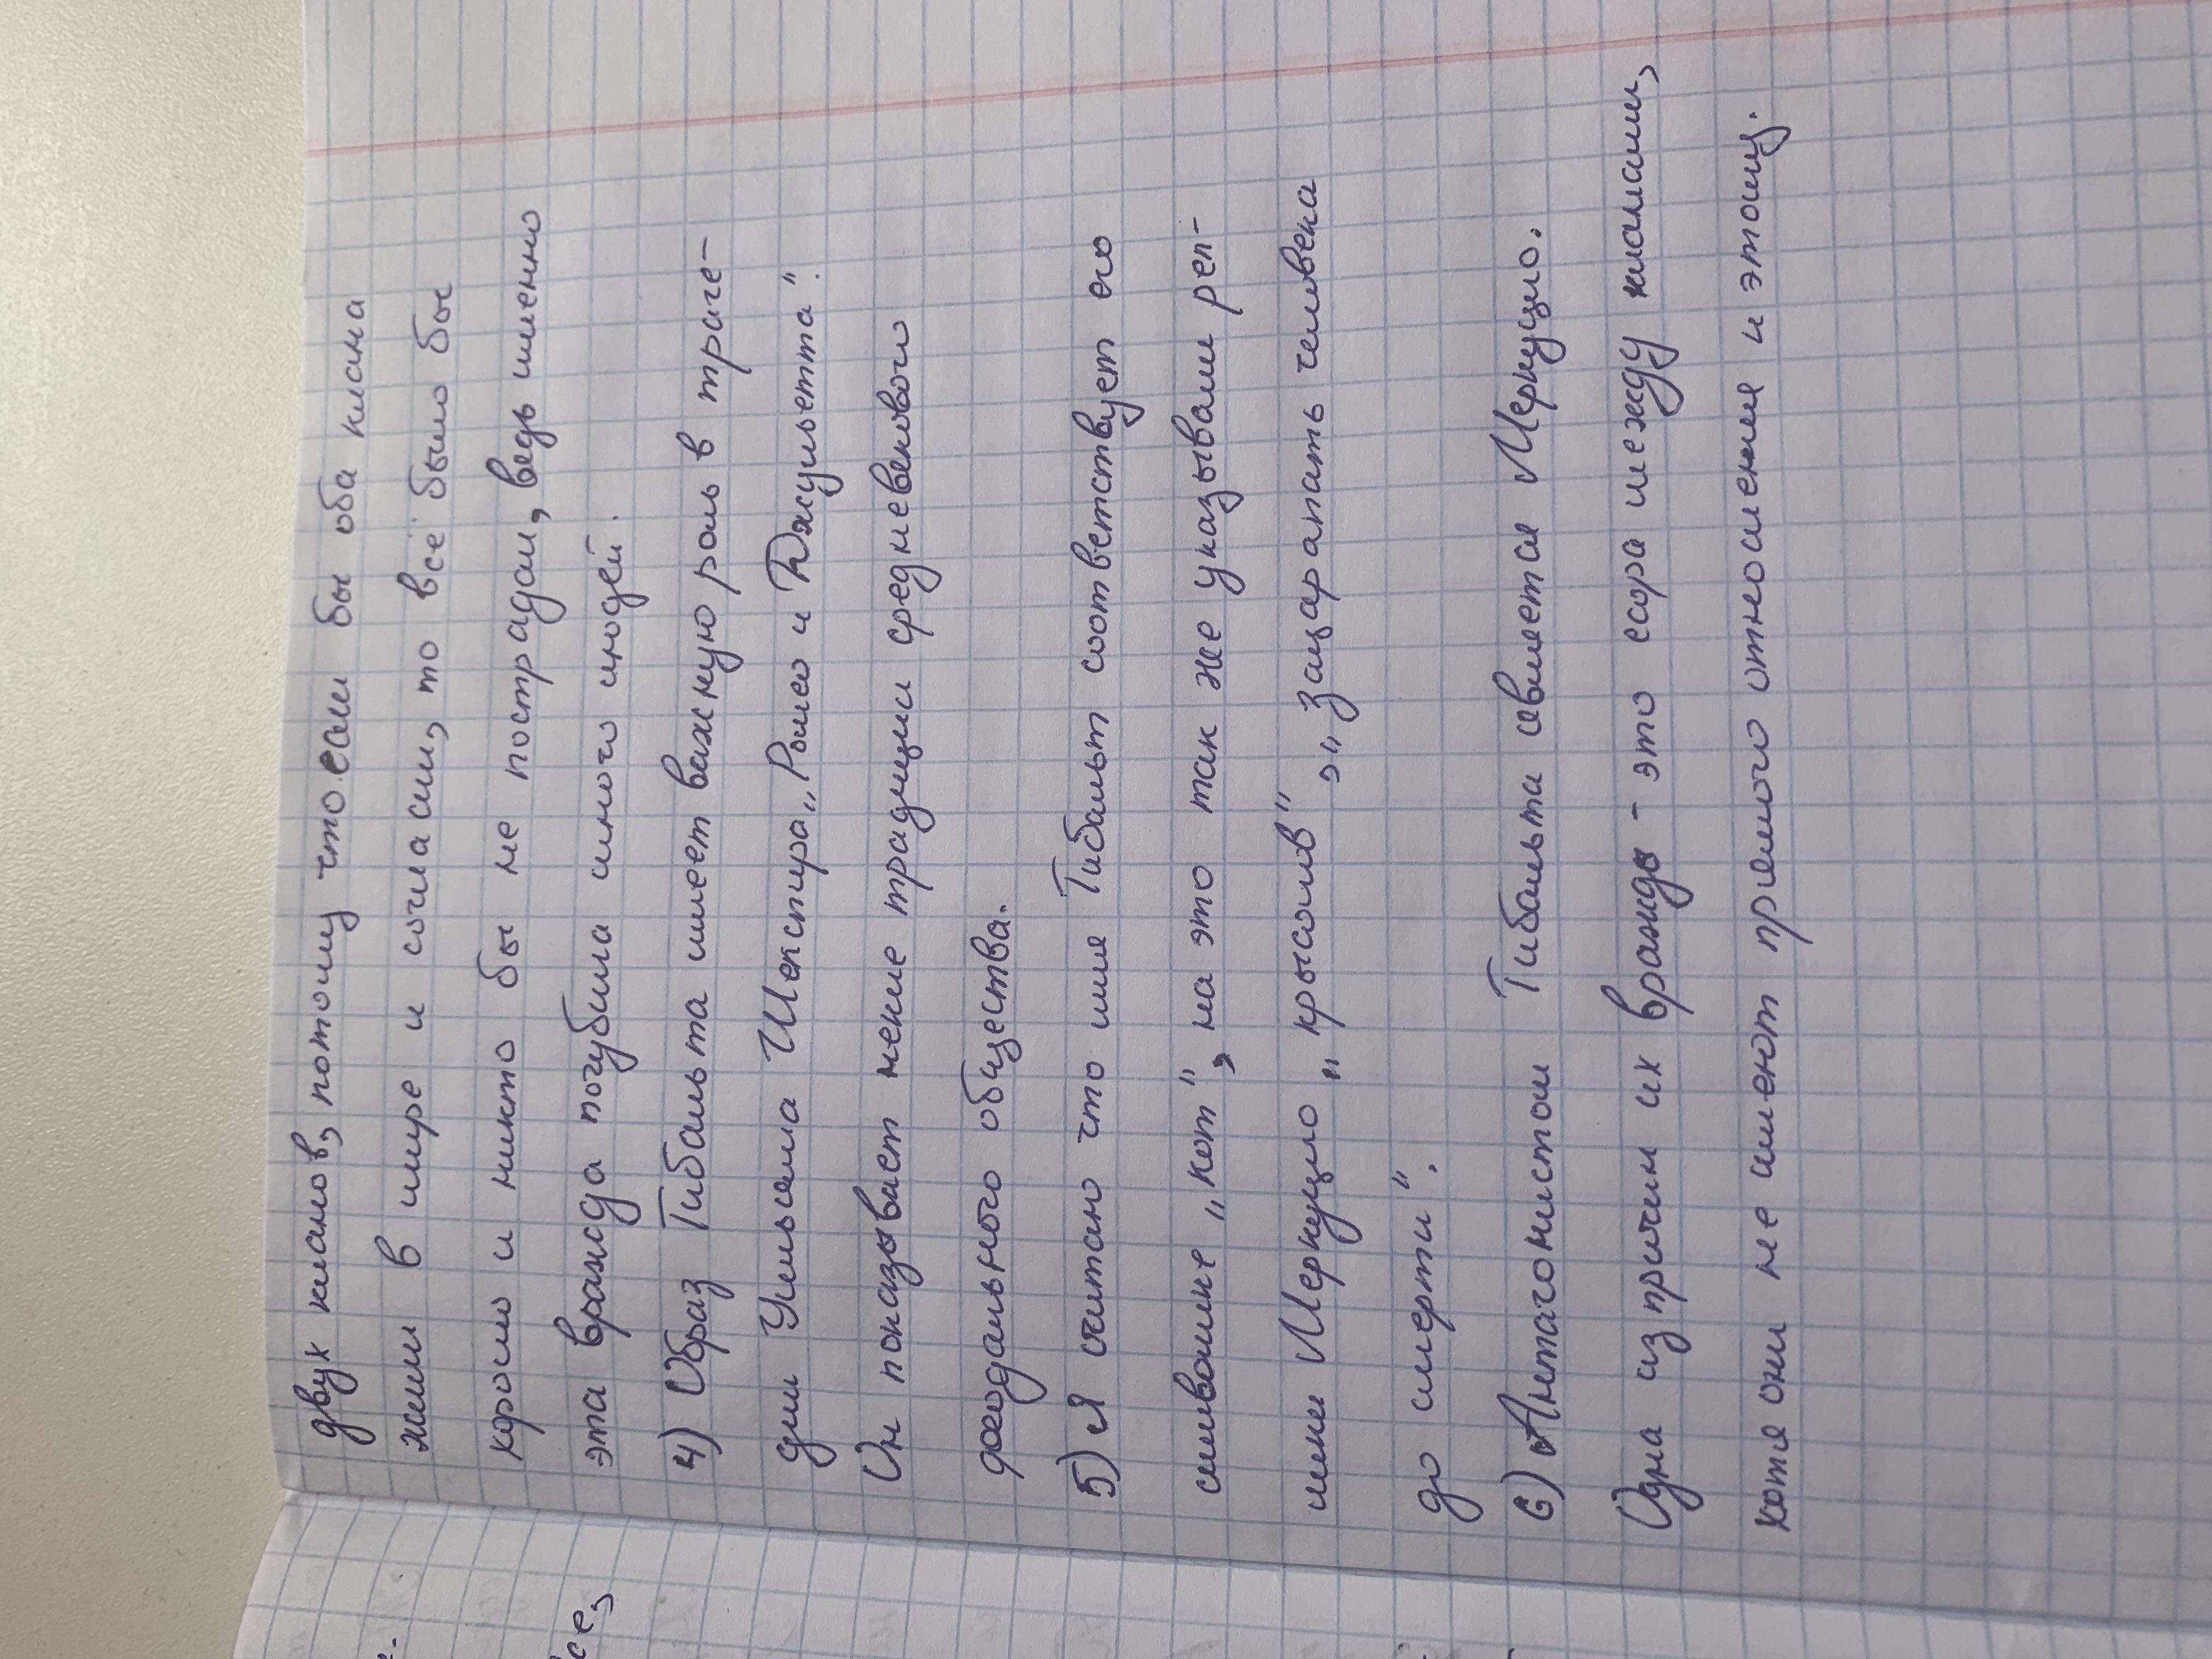 двух кланов, потому что если бы оба клана
жили в мире и согласии, то всё было бы
хорошо и никто бы не пострадал, ведь именно
эта вражда погубила много людей.
4) Образ Тибальта имеет важную роль в траге-
дии Уильяма Шекспира „Ромео и Джульетта".
Он показывает некие традиции средневекового
феодального общества.
5) Я считаю что имя Тибальт соответствует его
символике „кот", на это так же указывали реп-
лики Меркуцио „крысолов", „зацарапать человека
до смерти".
6) Антагонистом Тибальта является Меркуцио.
Одна из причин их вражды - это сора между кланами,
хотя они не имеют прямого отношения к этому.